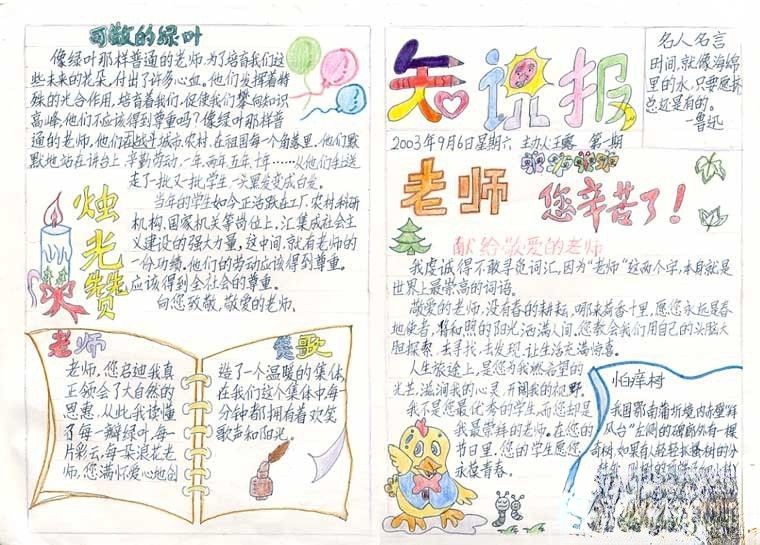 可敬的绿叶
像绿叶那样普通的老师,为了培育我们这
些未来的花朵,付出了许多心血。他们发挥着特
殊的光合作用,培育着我们,促使我们攀向知识
高峰,他们不应该得到尊重吗?像绿叶那样普
通的老师,他们 城市、农村,在祖国每一个角落里,他们默
默地站在讲台上,辛勤劳动,一年两年五年十年……从他们手上送
走了一批又一批学生,一头黑发变成白发。
当年的学生如今正活跃在工厂、农村、科研
机构、国家机关等岗位上,汇集成社会主
义建设的强大力量,这中间,就有老师的
一份功绩。他们的劳动应该得到尊重。
应该得到全社会的尊重。
向您致敬,敬爱的老师。
烛光赞
老师
老师,您启迪我真
正领会了大自然的
恩惠,从此我读懂
了每一瓣绿叶,每一
片彩云,每朵浪花老
师,您满怀爱心地创
赞歌
造了一个温暖的集体,
在我们这个集体中每一
分钟都拥有着欢笑
歌声和阳光。
知识报
名人名言
时间,就像海绵
里的水,只要愿挤
总还是有的。
—鲁迅
2003年9月6日星期六 主办人:王露 第一期
老师
您辛苦了!
献给敬爱的老师
我虔诚得不敢寻觅词汇,因为"老师"这两个字,本身就是
世界上最崇高的词语。
敬爱的老师,没有春的耕耘,哪来荷香十里,愿您永远是春
地使者,将和照的阳光洒满人间。您教会我们用自己的头脑大
胆探索,去寻找,去发现,让生活充满惊喜。
人生旅途上,是您为我燃希望的
光芒,滋润我的心灵,开阔我的视野。
我不是您最优秀的学生,而您却是
我最崇拜的老师。在您的
节日里,您的学生愿您,
永葆青春。
怕痒树
我国鄂南蒲圻境内赤壁"拜
风台"左侧的碑廊外有一棵
奇树,如果有人轻轻扒搔树的分